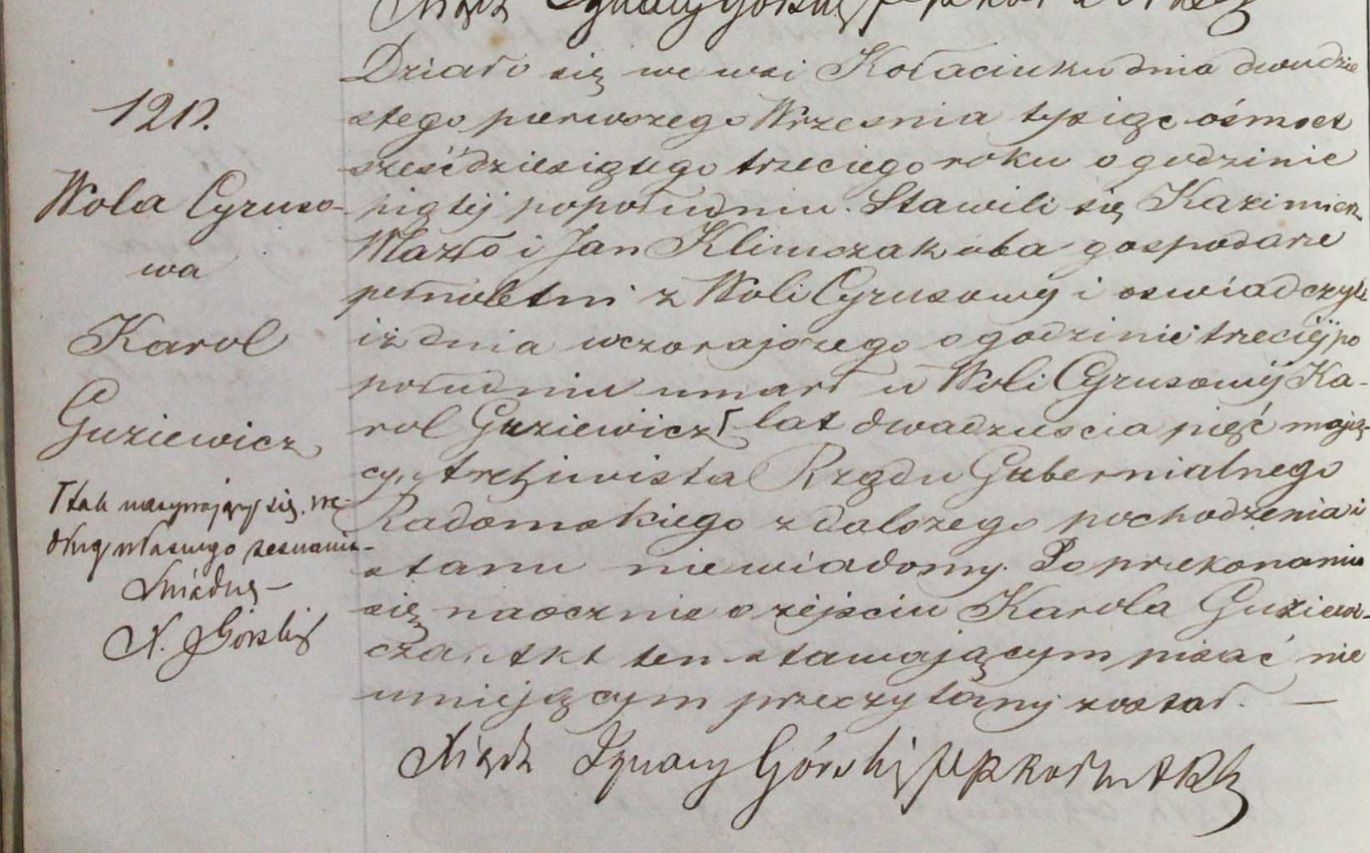 Xiądz Ignacy Górski
120.
Wola Cyruso-
wa
Karol
Guziewicz
Γ tak nazywający się we-
dług własnego zeznania
X. JGórski
Działo się we wsi Kołacinku dnia dwudzie
stego pierwszego Września tysiąc ośmset
sześćdziesiątego trzeciego roku o godzinie
piątej popołudniu. Stawili się Kazimierz
Mazło i Jan Klimczak oba gospodarze
pełnoletni z Woli Cyrusowy i oswiadczyli
iż dnia wczorajszego o godzinie trzeciej po
południu umarł w Woli Cyrusowy Ka-
rol Guziewicz Γ lat dwadzieścia pięć mają-
cy, Archiwista Rządu Gubernialnego
Radomskiego z dalszego pochodzenia i
stanu niewiadomy. Po przekonaniu
się naocznie o zejściu Karola Guziewi
cza, Akt ten stawającym pisać nie
umiejącym przeczytany został. —
Xiądz Ignacy Górski